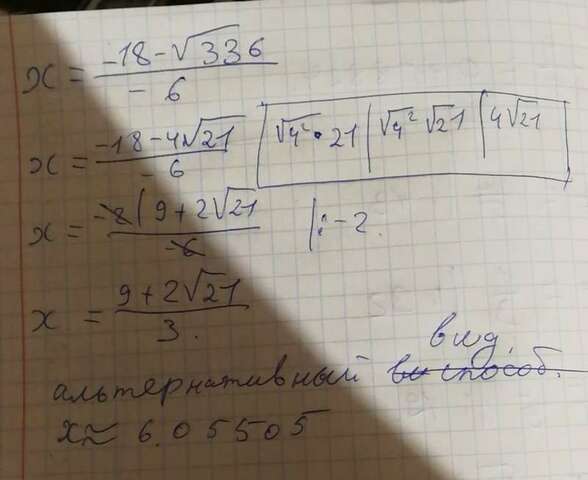 x = (-18 - √336) / -6
x = (-18 - 4√21) / -6 | √4² • 21 | √4² √21 | 4√21
x = -2(9 + 2√21 / -6 | : -2
x = (9 + 2√21) / 3.
вид.
альтернативный способ.
x ≈ 6.05505